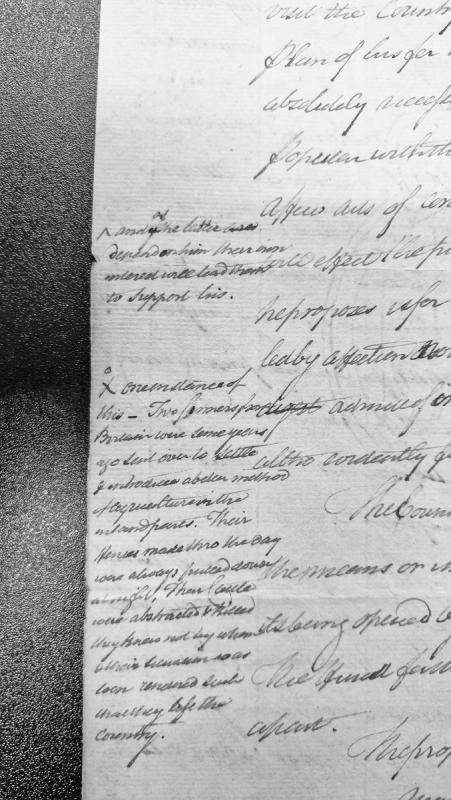 visit the Country
Plan of his for
absolutely
Popular with th
a few acts of con
^ and of the latter as
depend on him their own
interest will lead them
to support his.
will effect
he proposes is for
led by affection
X one instance of
this – Two farmers from
Britain were some years
ago sent over to settle
& introduce a better method
of agriculture in the
inland parts. Their
fences made thro the day
were always pulled down
at night. Their Cattle
were abstracted & killed
they knew not by whom
& their situation was
soon rendered such
that they left the
Country.
admit of
altho evidently
The Coun
the means or in
its being opened b
The
apart.
The prop